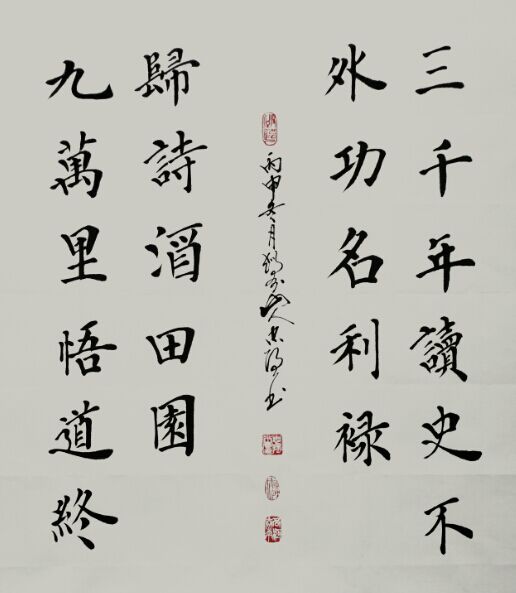 三千年讀史不
外功名利禄
九萬里悟道終
歸詩酒田園
丙申冬月